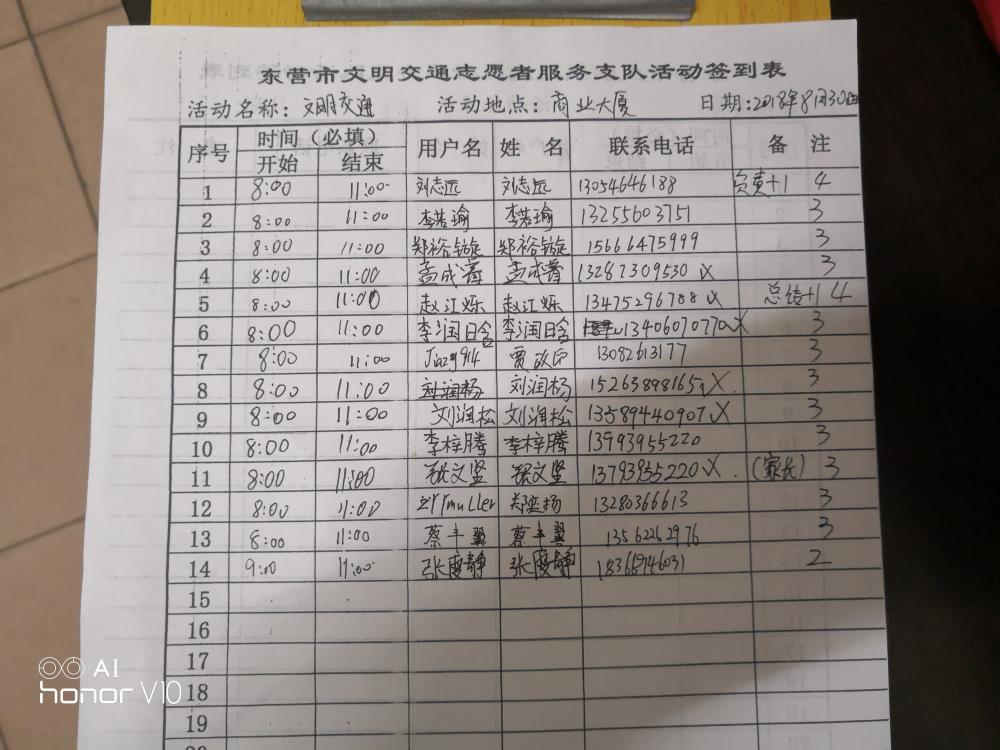 东营市文明交通志愿者服务支队活动签到表
活动名称：文明交通 活动地点：商业大厦 日期：2018年8月30日
序号 时间（必填） 用户名 姓 名 联系电话 备 注
开始 结束
1 8:00 11:00 刘志远 刘志远 13054646188 负责+1 4
2 8:00 11:00 李若瑜 李若瑜 13255603751 3
3 8:00 11:00 郑裕铱 郑裕铱 15666475999 3
4 8:00 11:00 孟成蓉 孟成蓉 13287309530 X 3
5 8:00 11:00 赵江烁 赵江烁 13475296788 X 总结+1 4
6 8:00 11:00 李润晗 李润晗 13406070770 X 3
7 8:00 11:00 贾 13082613177 3
8 8:00 11:00 刘润杨 刘润杨 15263898165 X 3
9 8:00 11:00 刘润松 刘润松 13589440907 X 3
10 8:00 11:00 李梓腾 李梓腾 13993955220 3
11 8:00 11:00 张文坚 张文坚 13793955220 X （家长） 3
12 8:00 11:00 郑奕扬 13280366613 3
13 8:00 11:00 蔡丰翼 蔡丰翼 13562262976 3
14 9:00 11:00 张庆静 张庆静 2
15
16
17
18
19
AI
honor V10